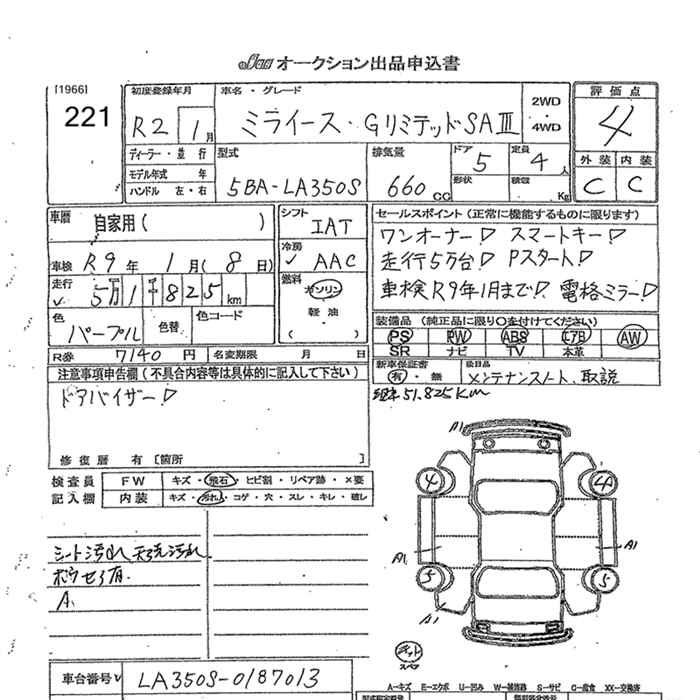 オークション出品申込書
[1966]
221
初度登録年月
R2 1月
車名・グレード
ミライース・GリミテッドSAⅢ
2WD
4WD
評価点
4
外装 内装
C C
ディーラー・並行
モデル年式 年
ハンドル 左・右
型式
5BA-LA350S
排気量
660 CC
ドア 5
定員 4人
形状
積載 Kg
車歴 自家用( )
シフト IAT
車検 R9年 1月(8日)
冷房 AAC
走行 5万1千825km
燃料
ガソリン
軽油
( )
色 パープル
色替
色コード
R券 7140円 名変期限 月 日
セールスポイント(正常に機能するものに限ります)
ワンオーナー! スマートキー!
走行5万台! Pスタート!
車検R9年1月まで! 電格ミラー!
装備品(純正品に限り○を付けてください)
PS PW ABS エアB AW
SR ナビ TV 本革
新車保証書
有・無
後日品
メンテナンスノート、取説
51.825Km
注意事項申告欄(不具合内容等は具体的に記入して下さい)
ドアバイザー!
修復歴 有[箇所 ]
検査員
記入欄
FW キズ・飛石・ヒビ割・リペア跡・X要
内装 キズ・汚れ・コゲ・穴・スレ・キレ・破レ
シート汚れ 天洗汚れ
A
A1
4 4
A1 A1
5 5
A1
車台番号 LA350S-0187013
A=キズ E=エクボ U=凹み W=補修跡 S=サビ C=腐食 XX=交換済